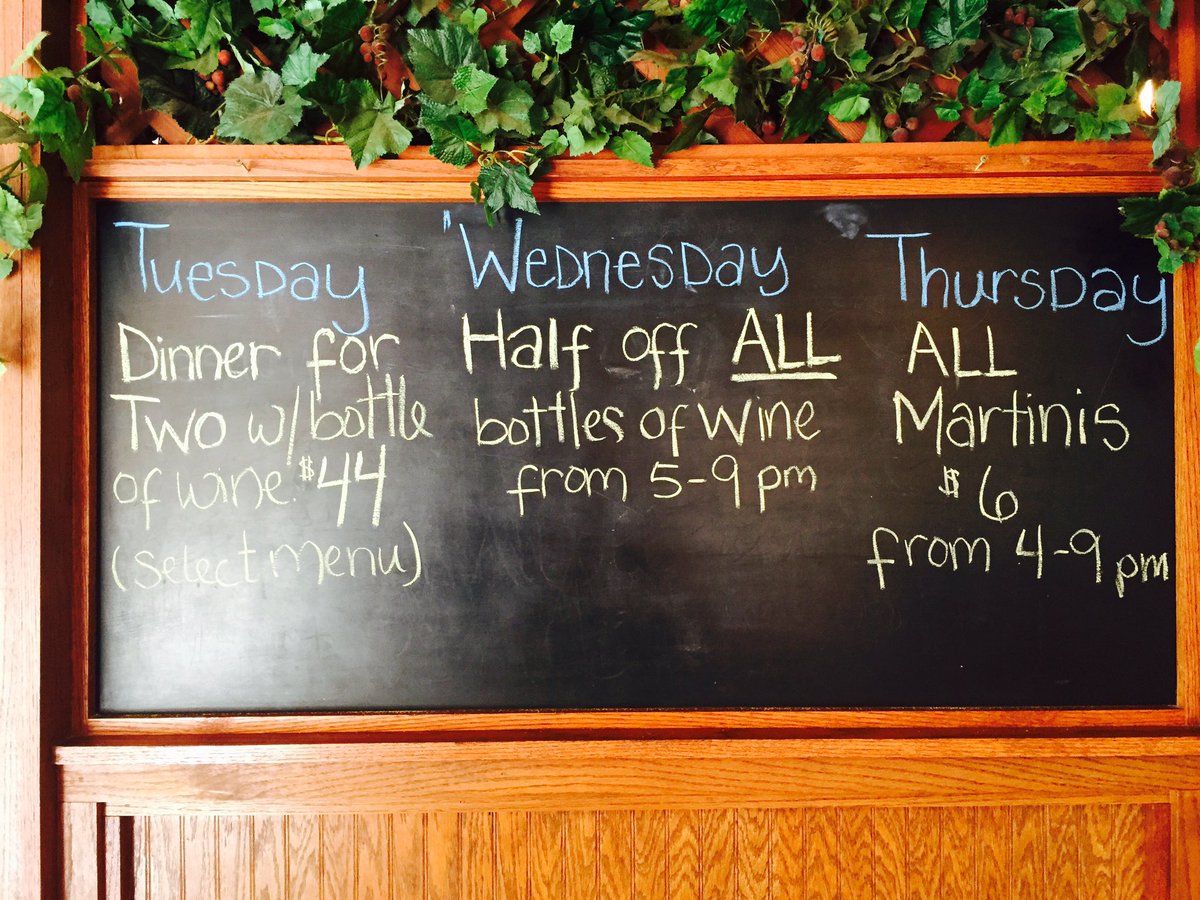 Tuesday
Dinner for
Two w/bottle
of wine. $44
(select menu)
Wednesday
Half off ALL
bottles of wine
from 5-9 pm
Thursday
ALL
Martinis
$6
from 4-9 pm